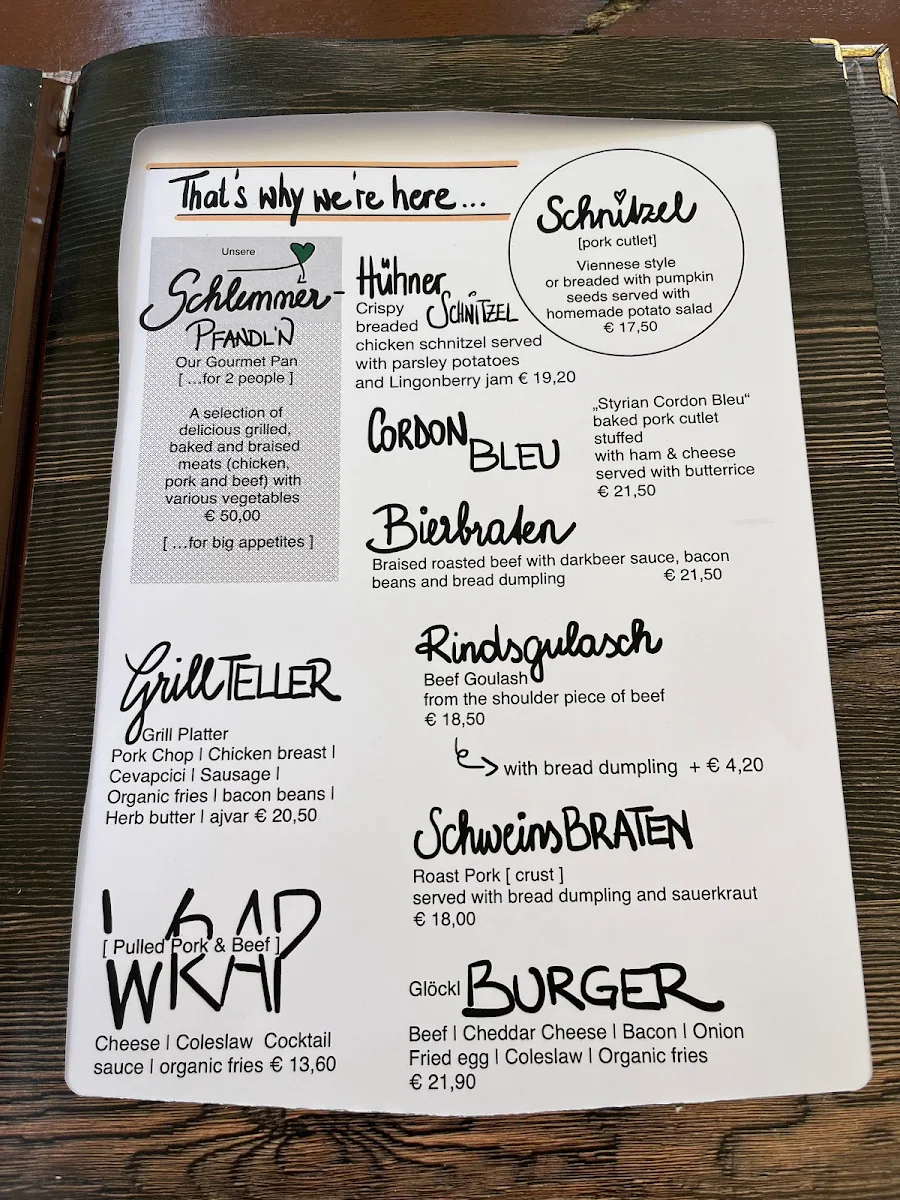 That's why we're here...
Schnitzel
[pork cutlet]
Viennese style
or breaded with pumpkin
seeds served with
homemade potato salad
€ 17,50
Unsere
Schlemmer-
PFANDL'N
Our Gourmet Pan
[ ...for 2 people ]
A selection of
delicious grilled,
baked and braised
meats (chicken,
pork and beef) with
various vegetables
€ 50,00
[ ...for big appetites ]
Hühner
SCHNITZEL
Crispy
breaded
chicken schnitzel served
with parsley potatoes
and Lingonberry jam € 19,20
CORDON
BLEU
„Styrian Cordon Bleu“
baked pork cutlet
stuffed
with ham & cheese
served with butterrice
€ 21,50
Bierbraten
Braised roasted beef with darkbeer sauce, bacon
beans and bread dumpling € 21,50
GrillTELLER
Grill Platter
Pork Chop | Chicken breast |
Cevapcici | Sausage |
Organic fries | bacon beans |
Herb butter | ajvar € 20,50
Rindsgulasch
Beef Goulash
from the shoulder piece of beef
€ 18,50
with bread dumpling + € 4,20
SchweinsBRATEN
Roast Pork [ crust ]
served with bread dumpling and sauerkraut
€ 18,00
WRAP
[ Pulled Pork & Beef ]
WRAP
Cheese | Coleslaw Cocktail
sauce | organic fries € 13,60
Glöckl BURGER
Beef | Cheddar Cheese | Bacon | Onion
Fried egg | Coleslaw | Organic fries
€ 21,90